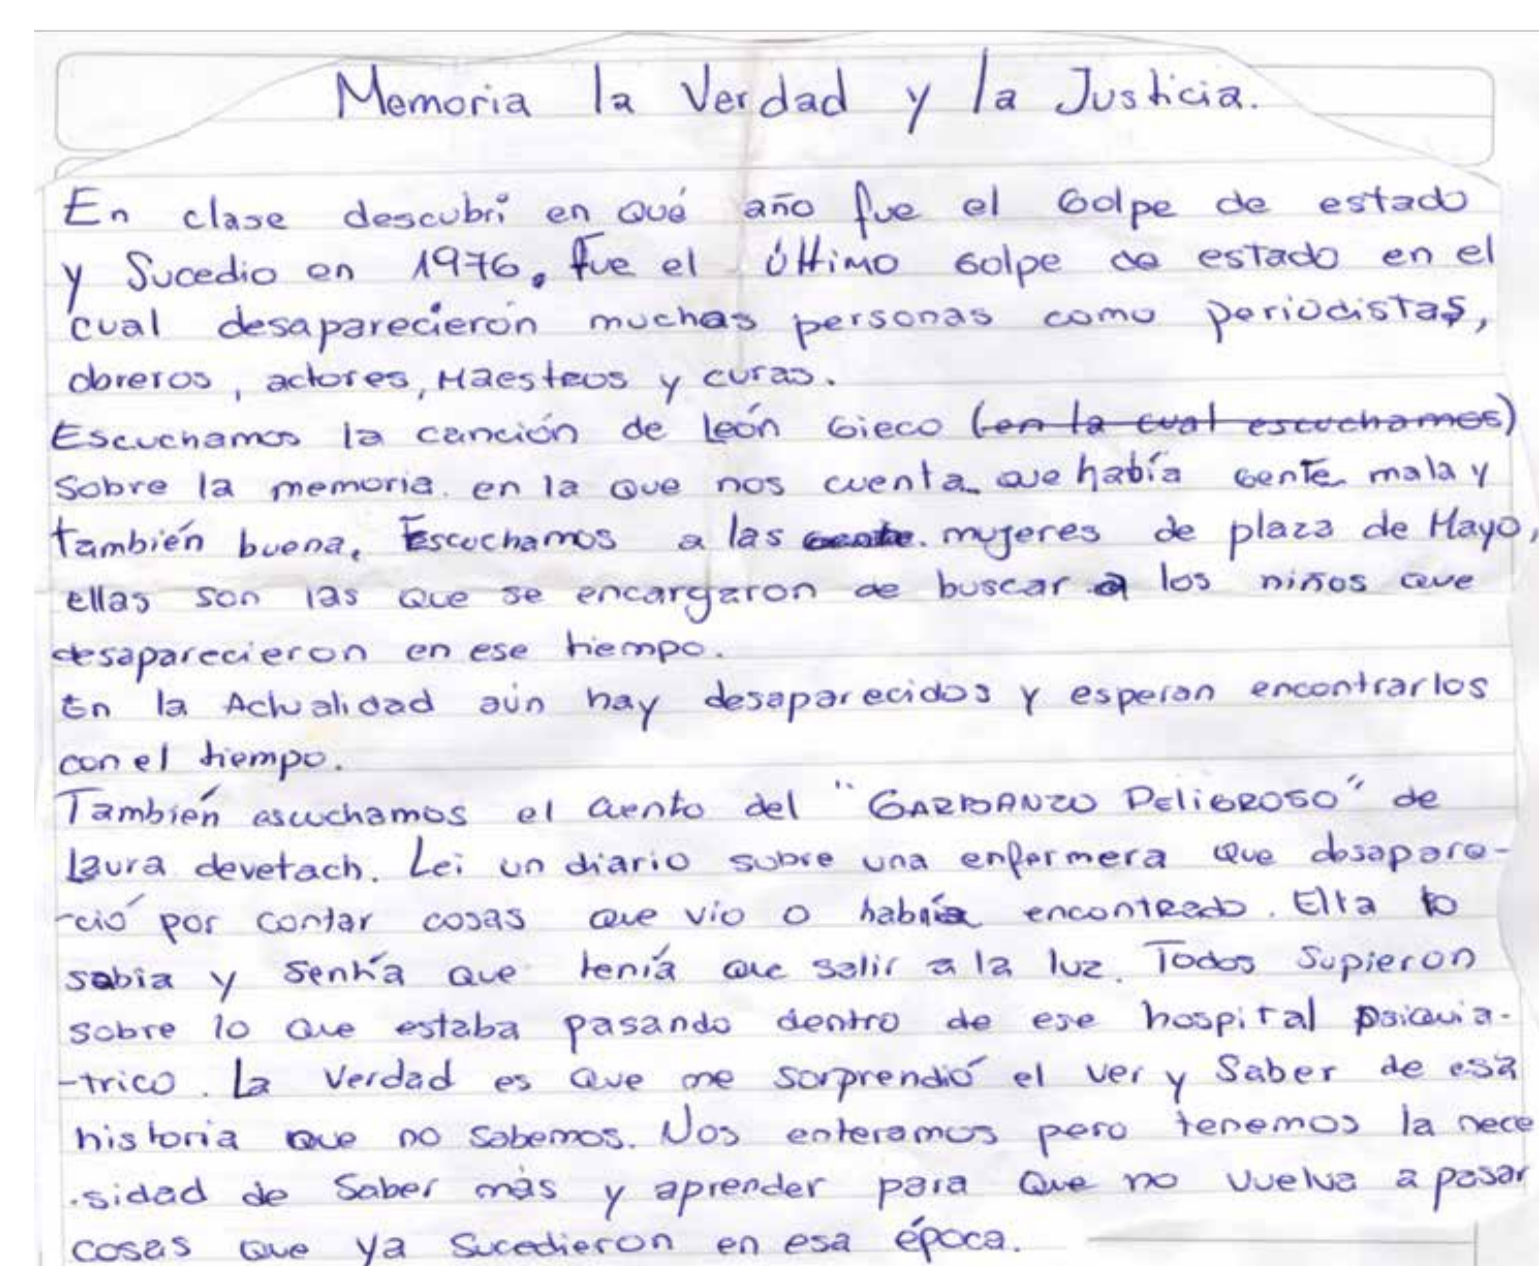 Memoria la Verdad y la Justicia.
En clase descubrí en qué año fue el Golpe de estado
y Sucedio en 1976. fue el último Golpe de estado en el
cual desaparecieron muchas personas como periodistas,
obreros, actores, Maestros y curas.
Escuchamos la canción de león Gieco (en la cual escuchamos)
Sobre la memoria en la que nos cuenta que había Gente mala y
también buena. Escuchamos a las gente mujeres de plaza de Mayo,
ellas son las que se encargaron de buscar a los niños que
desaparecieron en ese tiempo.
En la Actualidad aún hay desaparecidos y esperan encontrarlos
con el tiempo.
También escuchamos el cuento del "GARBANZO PELIGROSO" de
Laura devetach. Lei un diario sobre una enfermera que desapare-
-ció por contar cosas que vio o había encontrado. Ella lo
sabia y sentía que tenía que salir a la luz. Todos Supieron
sobre lo que estaba pasando dentro de ese hospital psiquia-
-trico. La Verdad es que me sorprendió el ver y Saber de esa
historia que no sabemos. Nos enteramos pero tenemos la nece
-sidad de Saber más y aprender para que no vuelva a pasar
cosas que ya Sucedieron en esa época.